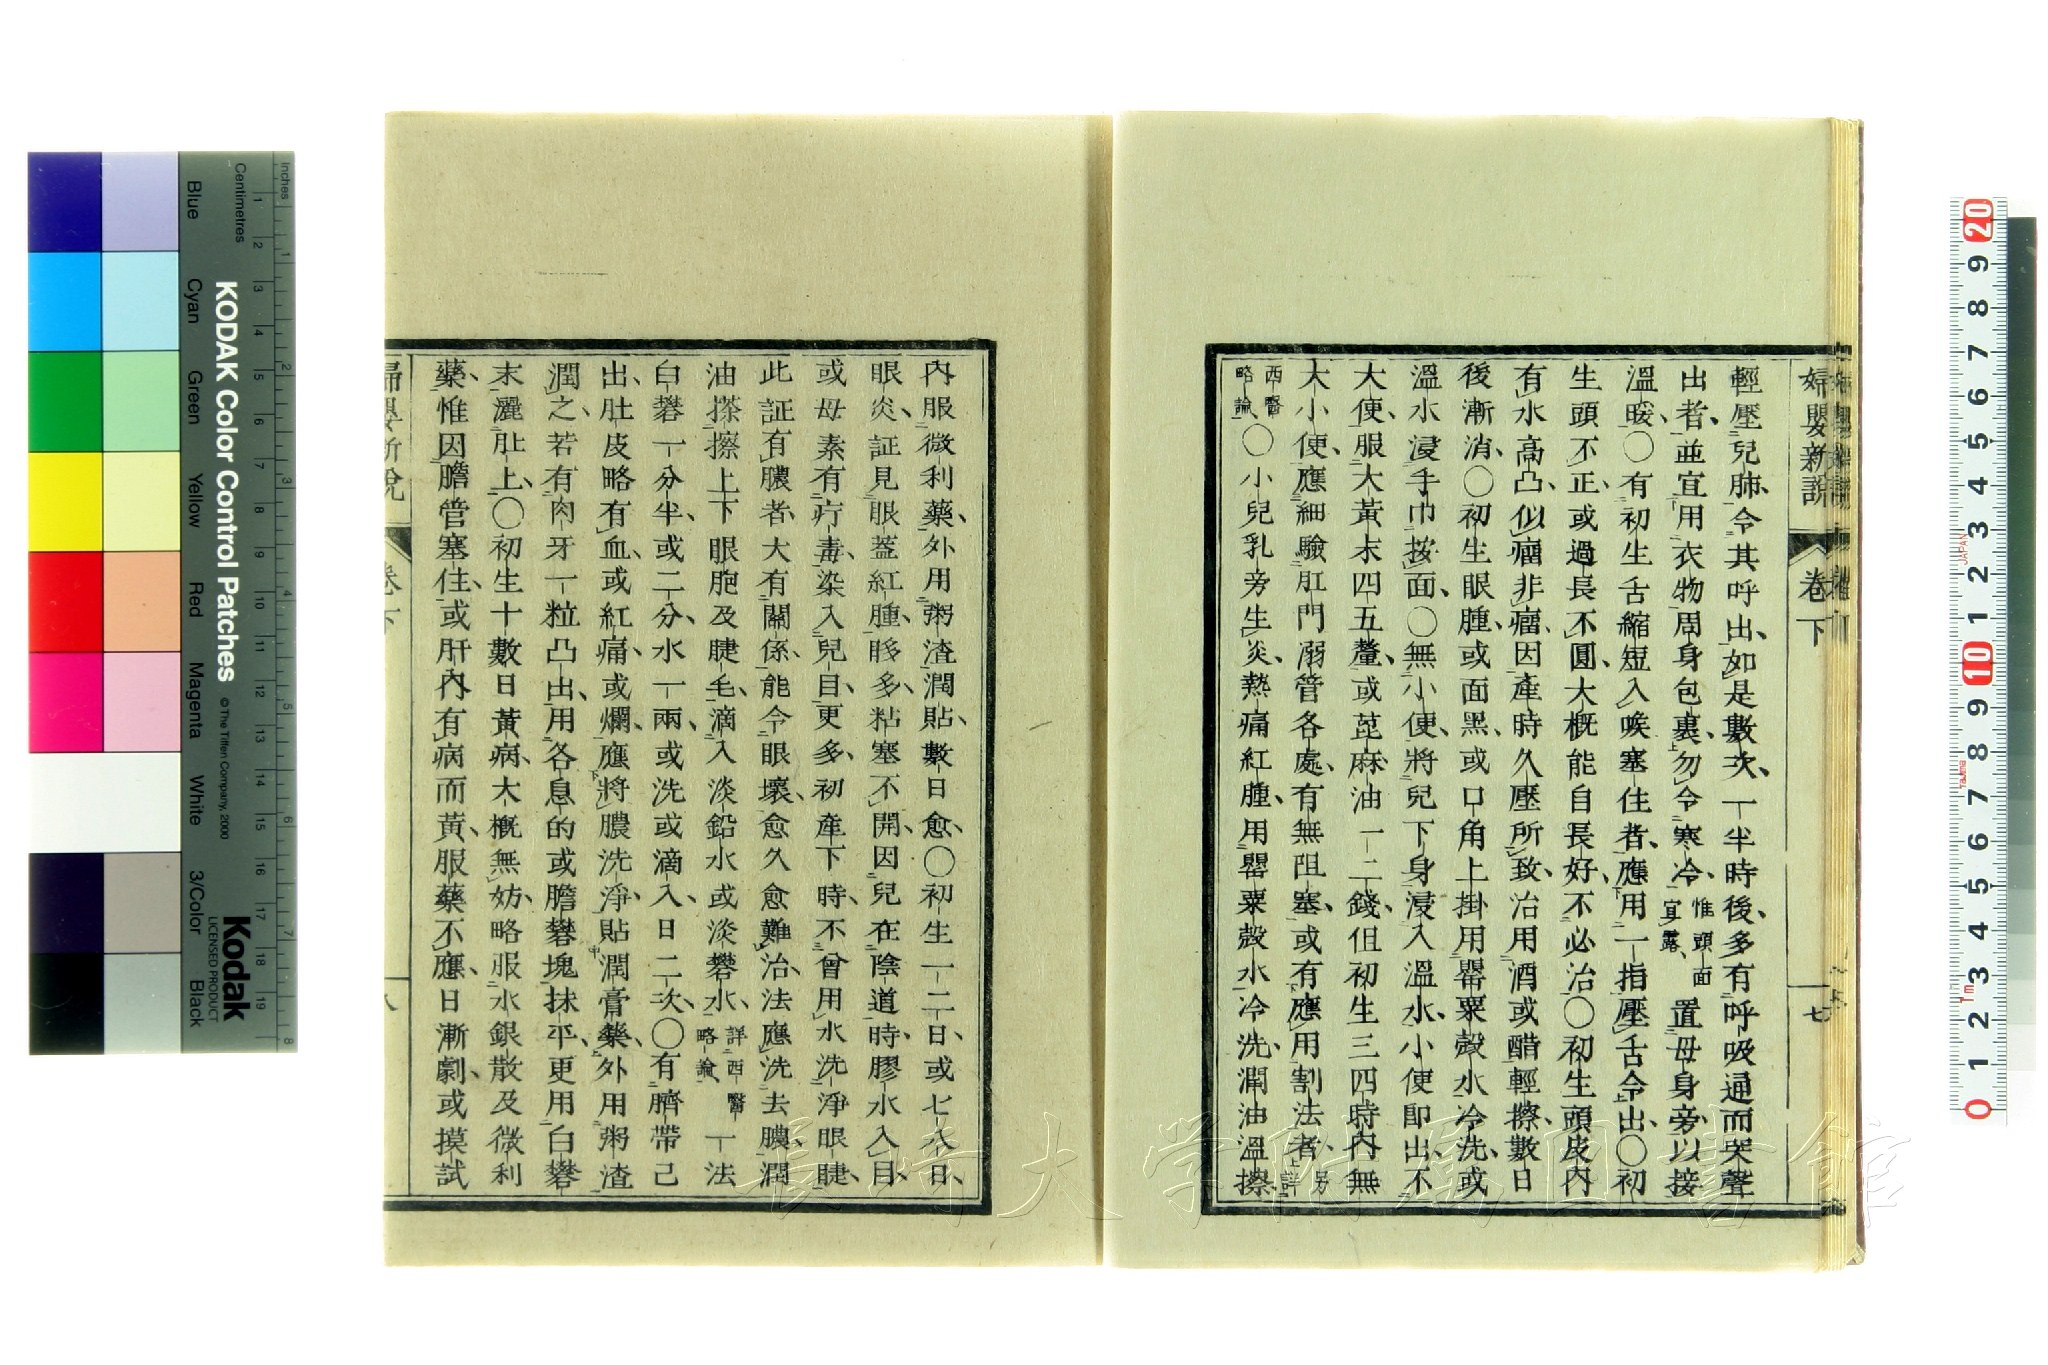 婦嬰新說
卷下
七
輕壓兒肺、令其呼出、如是數次、一半時後、多有呼吸通而哭聲
出者、並宜用衣物周身包裹、勿令寒冷、惟頭面宜露、置母身旁、以接
溫暖、○有初生舌縮短入喉塞住者、應用一指壓舌令出、○初
生頭不正、或過長不圓、大概能自長好、不必治○初生頭皮內
有水高凸、似瘤非瘤、因產時久壓所致、治用酒或醋輕擦、數日
後漸消、○初生眼腫、或面黑、或口角上掛、用罌粟殼水冷洗、或
溫水浸手巾按面、○無小便、將兒下身浸入溫水、小便即出、不
大便、服大黃末四五釐、或蓖麻油一二錢、但初生三四時內、無
大小便、應細驗肛門溺管各處、有無阻塞、或有應用割法者、另詳
西醫略論、○小兒乳旁生炎、熱痛紅腫、用罌粟殼水冷洗、潤油溫擦、
內服微利藥、外用粥渣潤貼、數日愈、○初生一二日、或七八日、
眼炎、証見眼蓋紅腫、眵多粘塞不開、因兒在陰道時、膠水入目、
或母素有疔毒、染入兒目、更多、初產下時、不曾用水洗淨眼睫、
此証有膿者、大有關係、能令眼壞、愈久愈難治、法應洗去膿、潤
油搽擦上下眼胞及睫毛、滴入淡鉛水或淡礬水、詳西醫略論、一法
白礬一分半、或二分、水一兩、或洗或滴入、日二次、○有臍帶已
出、肚皮略有血、或紅痛、或爛、應將膿洗淨、貼潤膏藥、外用粥渣
潤之、若有肉牙一粒凸出、用各息的或膽礬塊抹平、更用白礬
末灑肚上、○初生十數日黃病、大概無妨、略服水銀散及微利
藥、惟因膽管塞住、或肝內有病而黃、服藥不應、日漸劇、或摸試
婦嬰新說
卷下
八
KODAK Color Control Patches
© The Tiffen Company, 2000
Kodak
LICENSED PRODUCT
Inches
Centimetres
Blue
Cyan
Green
Yellow
Red
Magenta
White
3/Color
Black
長崎大学附属図書館